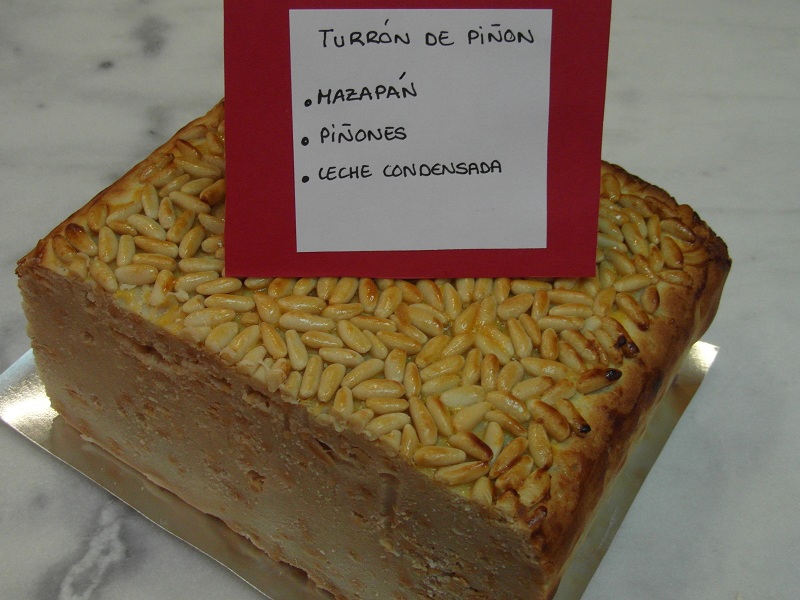 TURRÓN DE PIÑON
• MAZAPÁN
• PIÑONES
• LECHE CONDENSADA